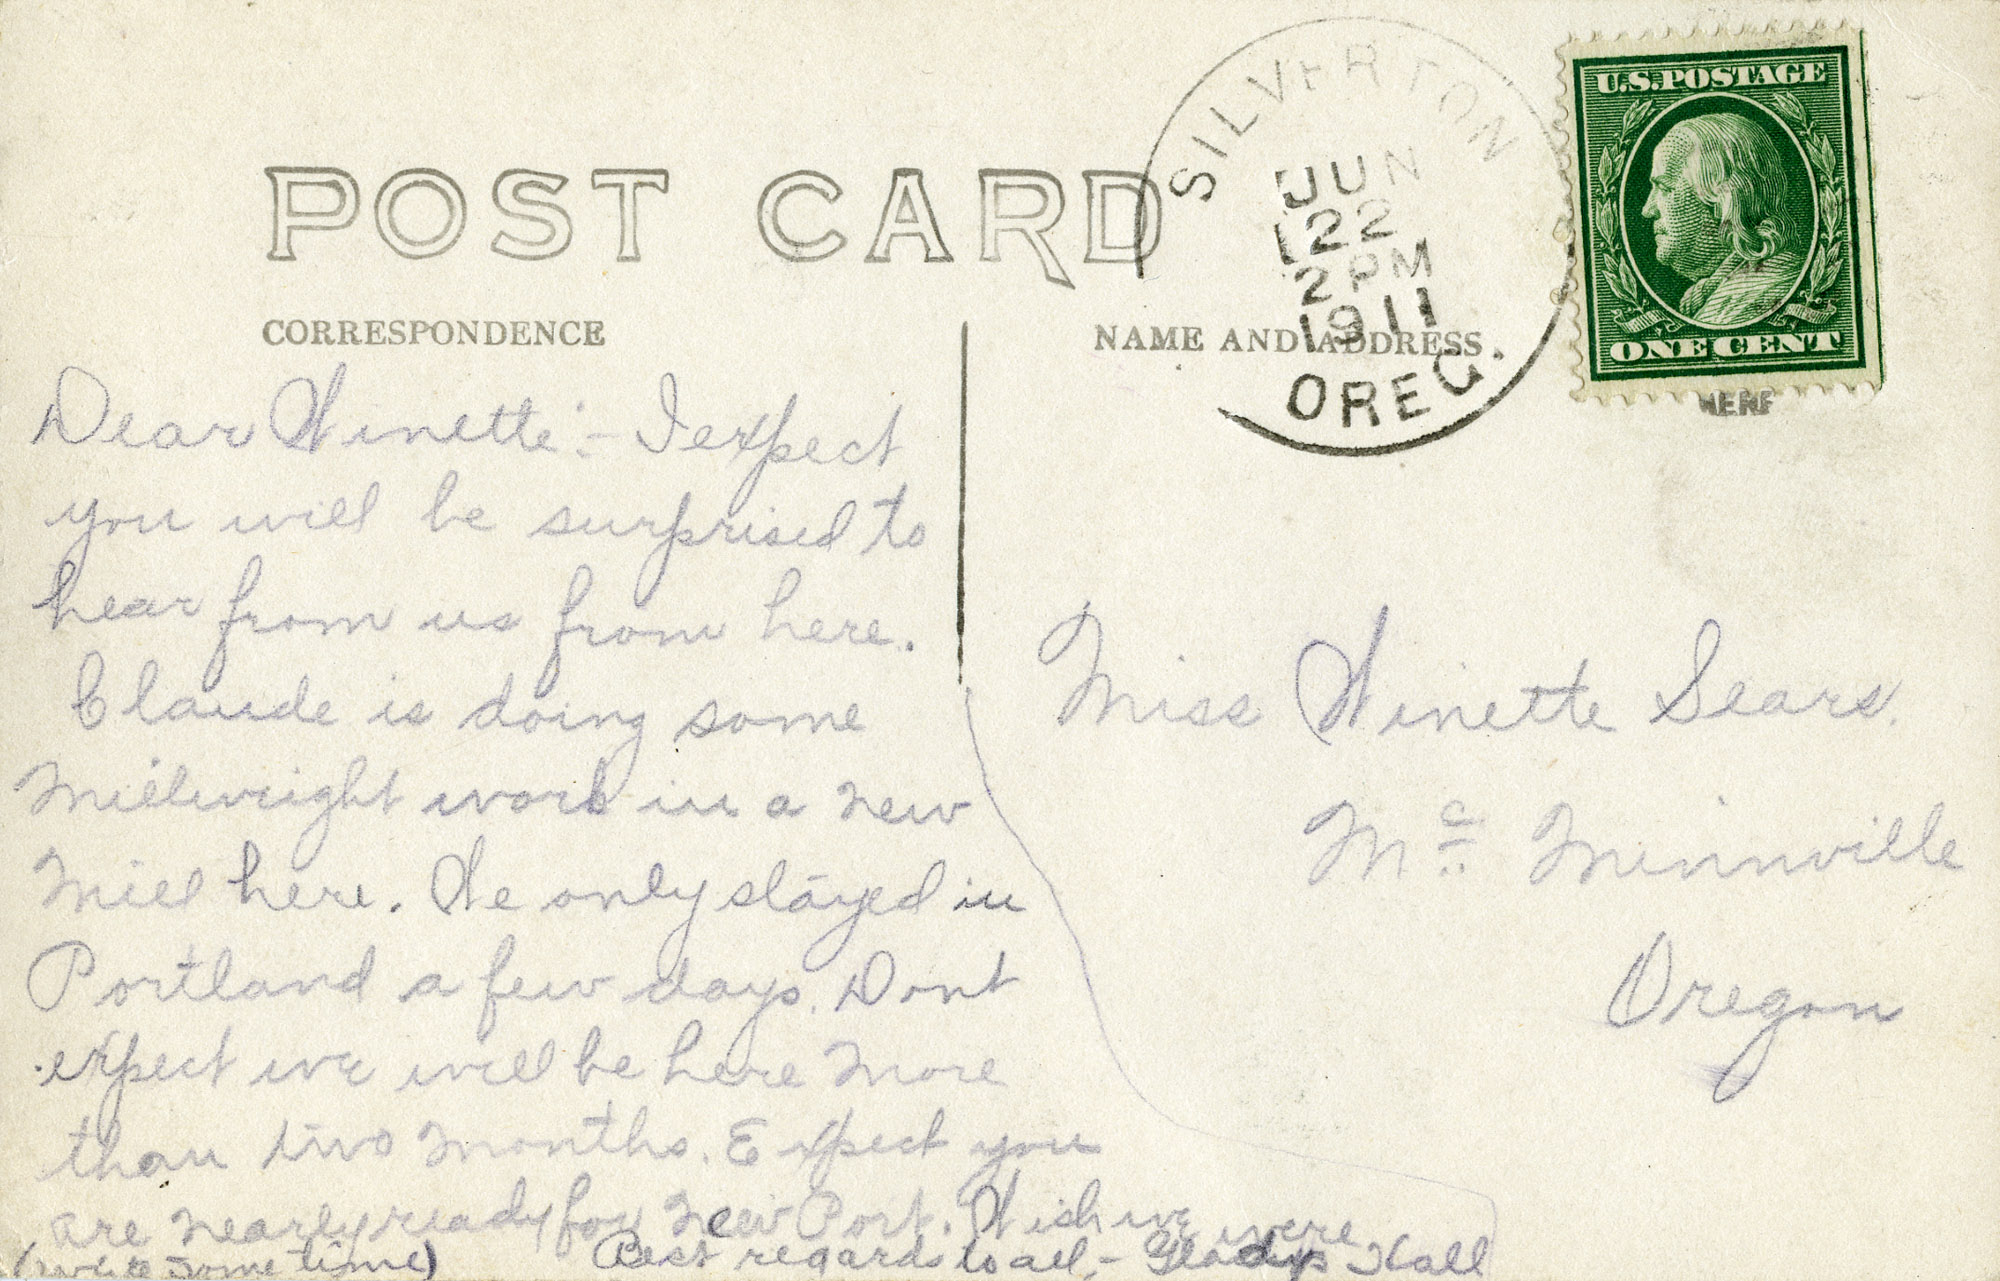 POST CARD
SILVERTON
JUN
22
2 PM
1911
OREG.
U.S. POSTAGE
ONE CENT
HERE
CORRESPONDENCE
NAME AND ADDRESS
Dear Winette:- I expect
you will be surprised to
hear from us from here.
Claude is doing some
Millwright work in a new
Mill here. We only stayed in
Portland a few days. Dont
expect we will be here more
than two months. Expect you
are nearly ready for New Port. Wish we were
(write some time) Best regards to all,- Gladys Hall
Miss Winette Sears.
Mc Minnville
Oregon